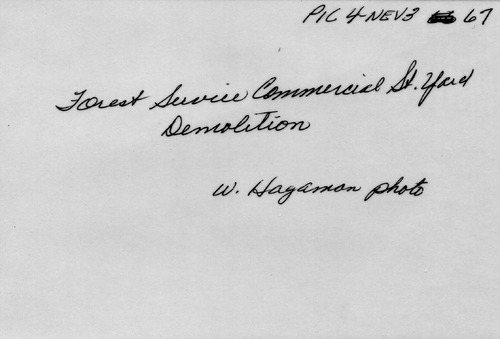 PIC 4-NEV3 67
Forest Service Commercial St. Yard
Demolition
W. Hagaman photo